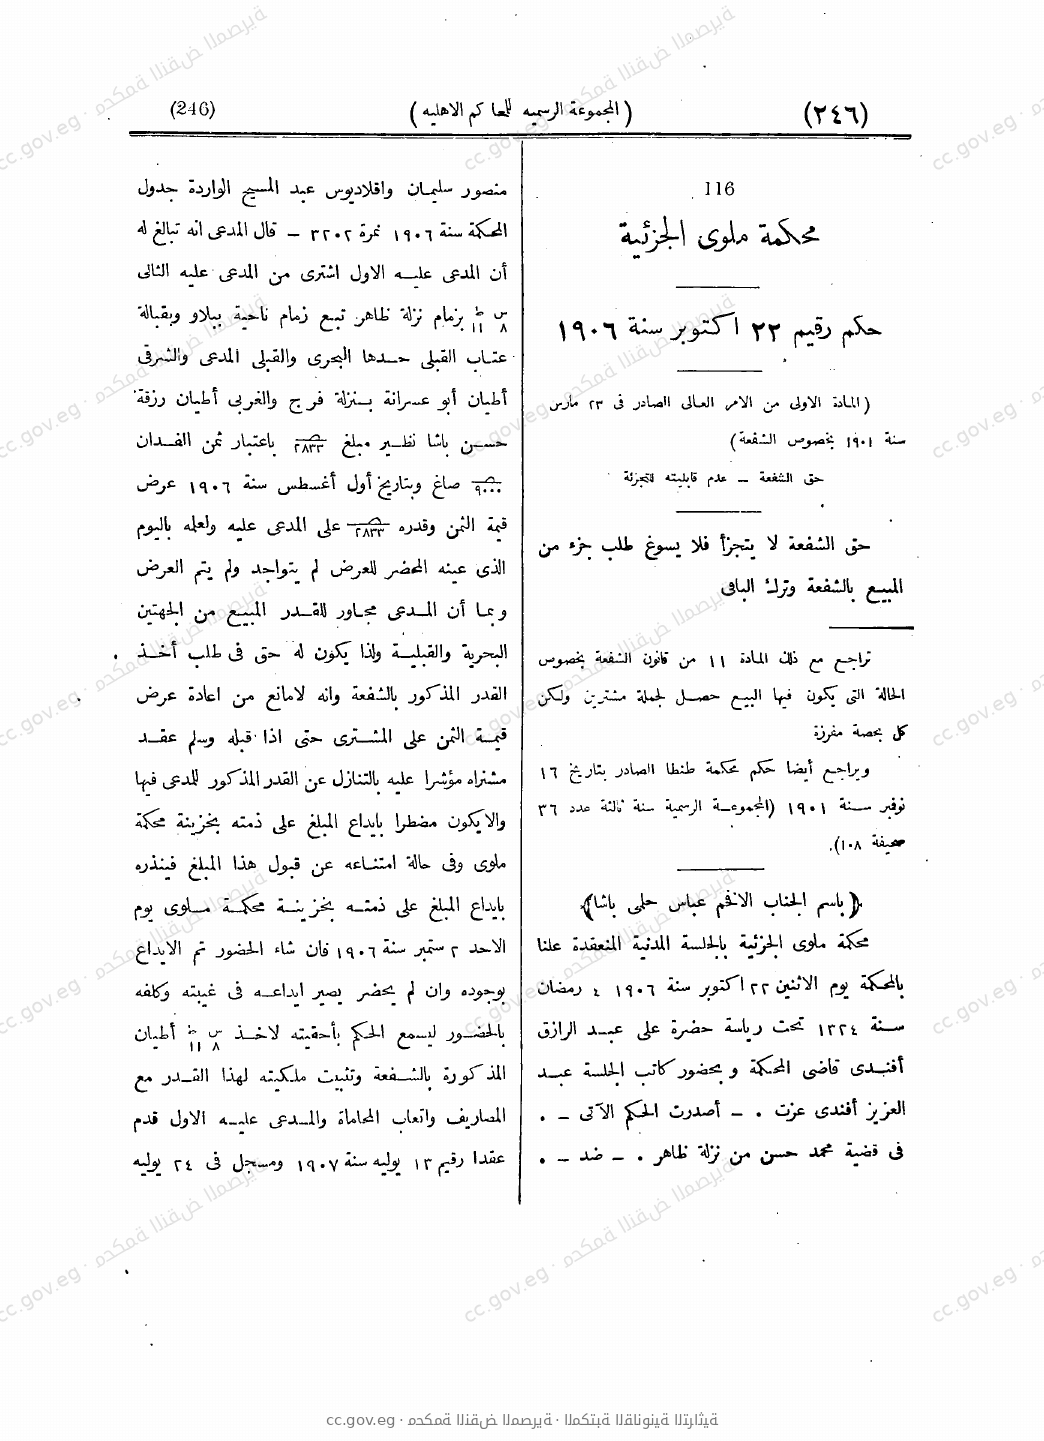 (٢٤٦)
(المجموعة الرسميه للمحاكم الاهليه)
(246)
116
محكمة ملوى الجزئية
حكم رقيم ٢٢ اكتوبر سنة ١٩٠٦
(المادة الاولى من الامر العالى الصادر فى ٢٣ مارس
سنة ١٩٠١ بخصوص الشفعة)
حق الشفعة – عدم قابليته للتجزئة
حق الشفعة لا يتجزأ فلا يسوغ طلب جزء من
المبيع بالشفعة وترك الباقى
تراجع مع ذلك المادة ١١ من قانون الشفعة بخصوص
الحالة التى يكون فيها البيع حصل لجملة مشترين ولكن
كل بحصة مفرزة
ويراجع أيضا حكم محكمة طنطا الصادر بتاريخ ١٦
نوفبر سنة ١٩٠١ (المجموعة الرسمية سنة ثالثة عدد ٣٦
صحيفة ١٠٨).
(باسم الجناب الافخم عباس حلمى باشا)
محكمة ملوى الجزئية بالجلسة المدنية المنعقدة علنا
بالمحكمة يوم الاثنين ٢٢ اكتوبر سنة ١٩٠٦ ٤ رمضان
سنة ١٣٢٤ تحت رياسة حضرة على عبد الرازق
أفندى قاضى المحكمة وبحضور كاتب الجلسة عبد
العزيز أفندى عزت . – أصدرت الحكم الآتى – .
فى قضية محمد حسن من نزلة ظاهر . – ضد – .
منصور سليمان واقلاديوس عبد المسيح الواردة جدول
المحكمة سنة ١٩٠٦ نمرة ٣٢٠٢ – قال المدعى انه تبالغ له
أن المدعى عليه الاول اشترى من المدعى عليه الثانى
س ٨ ط ١١ بزمام نزلة ظاهر تبع زمام ناحية ببلاو وبقبالة
عتاب القبلى حدها البحرى والقبلى المدعى والشرقى
أطيان أبو عسرانة بنزلة فرج والغربى أطيان رزقة
حسن باشا نظير مبلغ ٢٨٣٣ باعتبار ثمن الفدان
٩٠٠٠ صاغ وبتاريخ أول أغسطس سنة ١٩٠٦ عرض
قيمة الثمن وقدره ٢٨٣٣ على المدعى عليه ولعلمه باليوم
الذى عينه المحضر للعرض لم يتواجد ولم يتم العرض
وبما أن المدعى مجاور للقدر المبيع من الجهتين
البحرية والقبلية ولذا يكون له حق فى طلب أخذ
القدر المذكور بالشفعة وانه لامانع من اعادة عرض
قيمة الثمن على المشترى حتى اذا قبله وسلم عقد
مشتراه مؤشرا عليه بالتنازل عن القدر المذكور للمدعى فبها
والايكون مضطرا بايداع المبلغ على ذمته بخزينة محكمة
ملوى وفى حالة امتناعه عن قبول هذا المبلغ فينذره
بايداع المبلغ على ذمته بخزينة محكمة ملوى يوم
الاحد ٢ ستمبر سنة ١٩٠٦ فان شاء الحضور تم الايداع
بوجوده وان لم يحضر يصير ايداعه فى غيبته وكلفه
بالحضور ليسمع الحكم بأحقيته لاخذ س ٨ ط ١١ أطيان
المذكورة بالشفعة وتثبيت ملكيته لهذا القدر مع
المصاريف واتعاب المحاماة والمدعى عليه الاول قدم
عقدا رقيم ١٣ يوليه سنة ١٩٠٧ ومسجل فى ٢٤ يوليه
cc.gov.eg · محكمة النقض المصرية · المكتبة القانونية التراثية